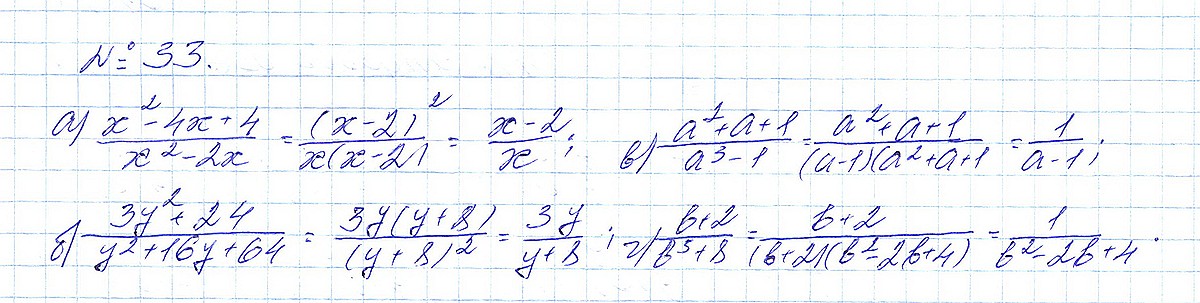 № 33.
а) (x² - 4x + 4)/(x² - 2x) = (x - 2)²/(x(x - 2)) = (x - 2)/x ; в) (a² + a + 1)/(a³ - 1) = (a² + a + 1)/((a - 1)(a² + a + 1) = 1/(a - 1) ;
б) (3y² + 24)/(y² + 16y + 64) = 3y(y + 8)/(y + 8)² = 3y/(y + 8) ; г) (b + 2)/(b³ + 8) = (b + 2)/((b + 2)(b² - 2b + 4)) = 1/(b² - 2b + 4) .